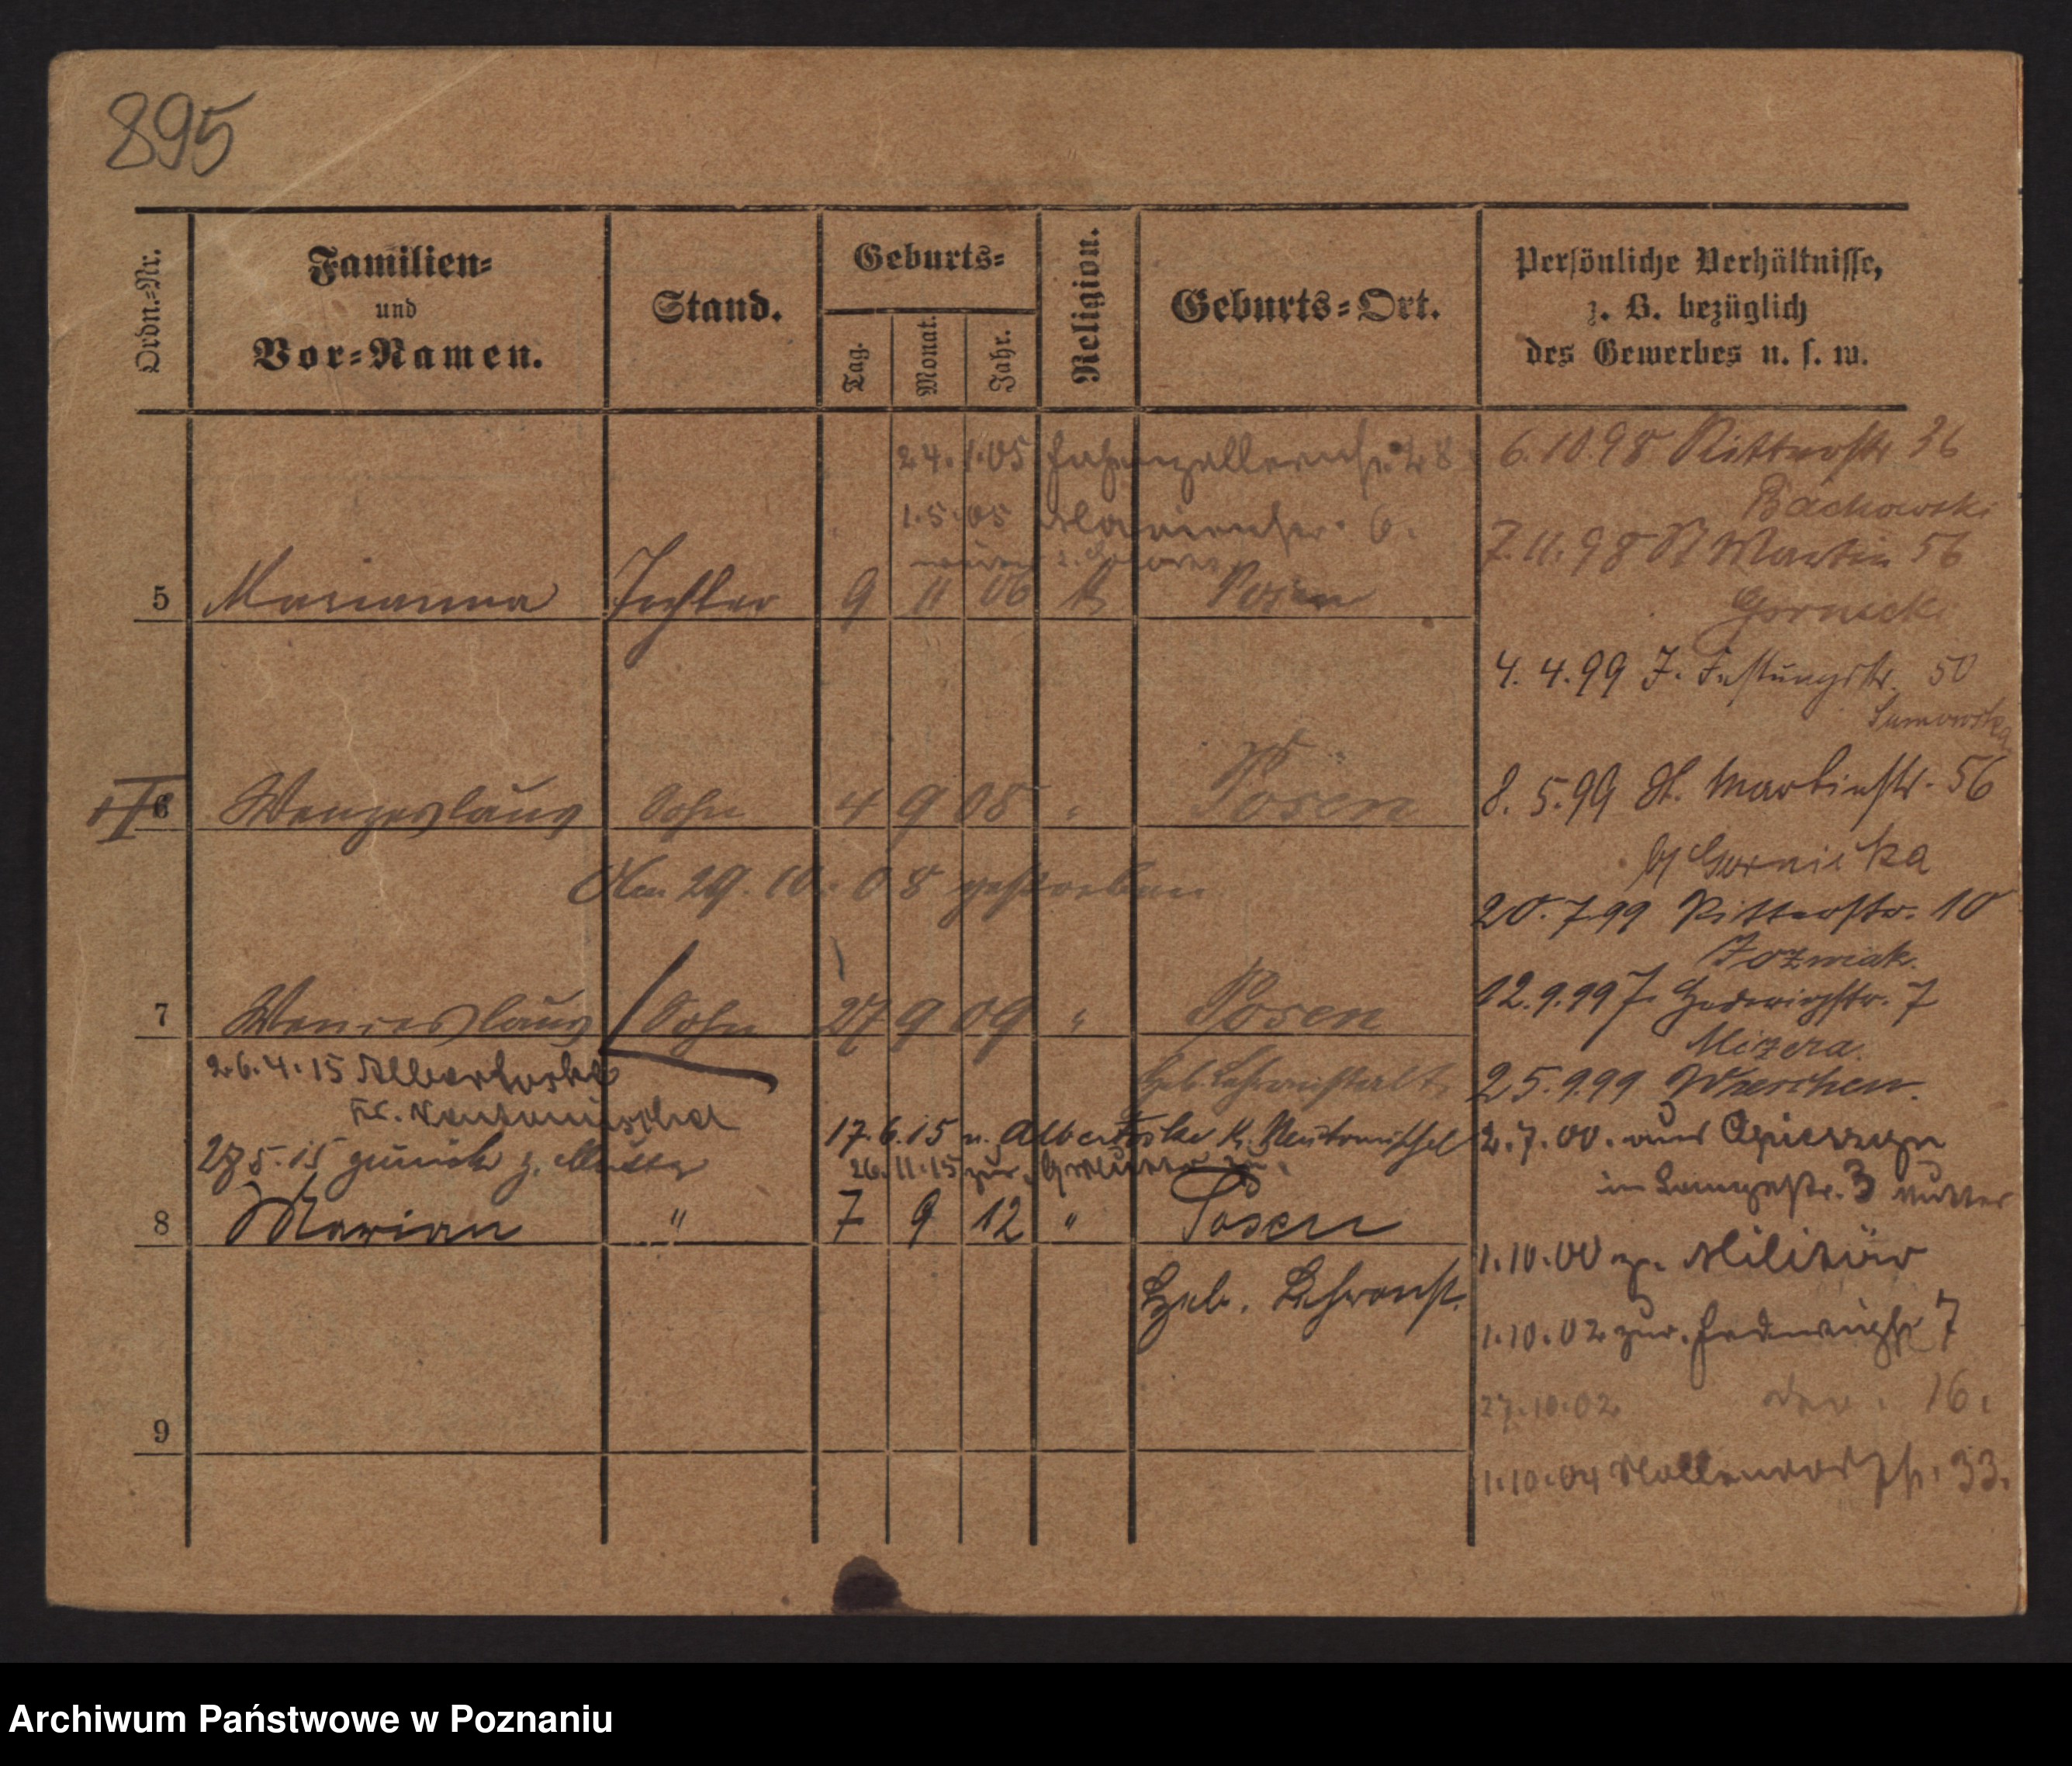 895
Ordn.-Nr.
Familien-
und
Vor-Namen.
Stand.
Geburts-
Tag.
Monat.
Jahr.
Religion.
Geburts-Ort.
Persönliche Verhältnisse,
z. B. bezüglich
des Gewerbes u. s. w.
24.1.05 Hohenzollernstr. 28
1.5.05 6.
5 Marianna Tochter 9 11 06 k Posen
6 Wenzeslaus Sohn 4 9 08 " Posen
Am 29.10.08 gestorben
7 Wenceslaus Sohn 27 9 09 " Posen
Heb. Lehranstalt
26.4.15 Albertoske
Kr. Neutomischel
17.6.15 n. Albertoske Kr. Neutomischel
27.5.15 zurück z. Mutter
26.11.15 zur.
8 Marian " 7 9 12 " Posen
Heb. Lehranst.
9
6.10.98 Ritterstr 36
Bachowski
7.11.98 St Martin 56
Gornick
4.4.99 F. Festungstr. 50
8.5.99 St. Martinstr. 56
b/ Gornicka
20.7.99 Ritterstr. 10
Jozwiak.
12.9.99 Hedwigstr. 7
Mizera.
25.9.99 Wreschen.
2.7.00. aus
in Langestr. 3 Mutter
1.10.00 z. Militär
1.10.02 zur. Hedwigstr 7
27.10.02 16.
1.10.04 Nollendorfstr. 33.
Archiwum Państwowe w Poznaniu